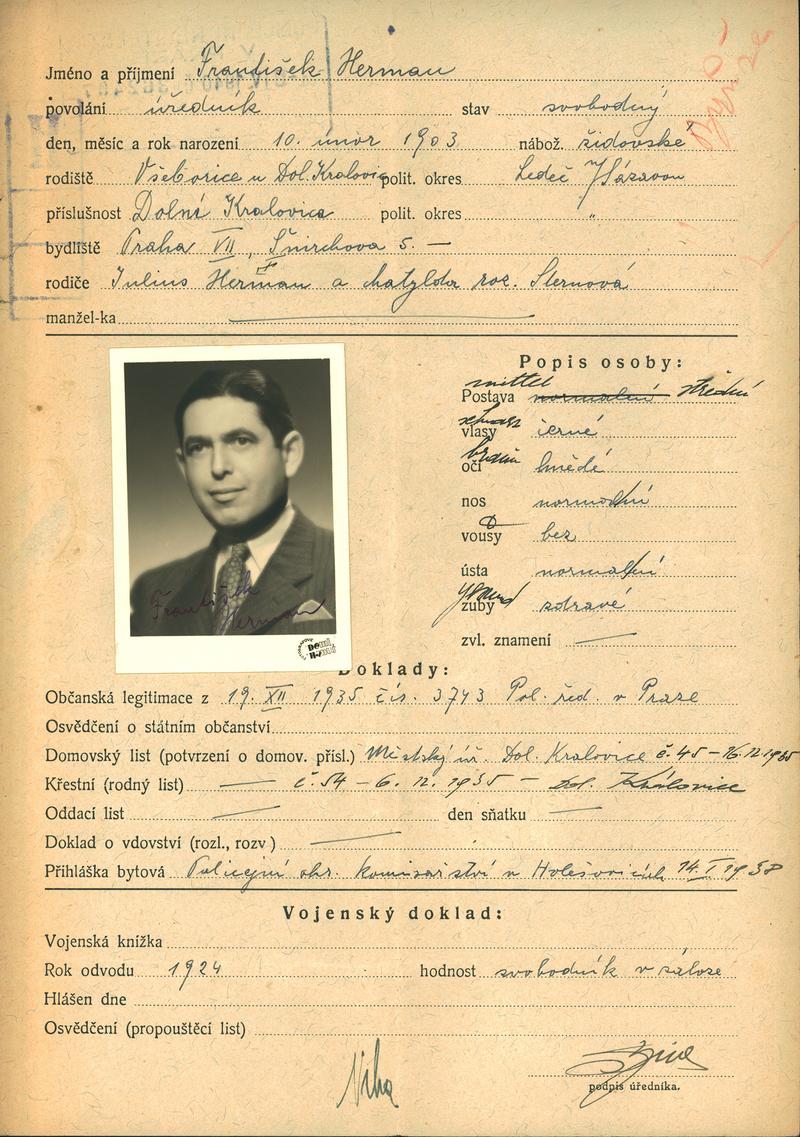 Jméno a příjmení František Herman
povolání úředník stav svobodný
den, měsíc a rok narození 10. únor 1903 nábož. židovské
rodiště Všeborice u Dol. Kralovic polit. okres Ledeč n/Sázavou
příslušnost Dolní Kralovice polit. okres "
bydliště Praha VII, Šnirchova 5. —
rodiče Julius Herman a Matylda roz. Sternová
manžel-ka
Popis osoby:
mittel
Postava normalní střední
schwarz
vlasy černé
braun
oči hnědé
nos normalní
vousy bez
ústa normalní
gesund
zuby zdravé
zvl. znamení —
František
Herman
Doklady:
Občanská legitimace z 19. XII 1935 čís. 3743 Pol. řed. v Praze
Osvědčení o státním občanství
Domovský list (potvrzení o domov. přísl.) Městský úř. Dol. Kralovice č. 45 – 16.12.1935
Křestní (rodný list) — č. 54 – 6. 12. 1935 – Dol. Kralovice
Oddací list — den sňatku —
Doklad o vdovství (rozl., rozv) —
Přihláška bytová Policejní obv. komisařství v Holešovicích 14. I 1938
Vojenský doklad:
Vojenská knížka
Rok odvodu 1924 hodnost svobodník v záloze
Hlášen dne
Osvědčení (propouštěcí list)
podpis úředníka.